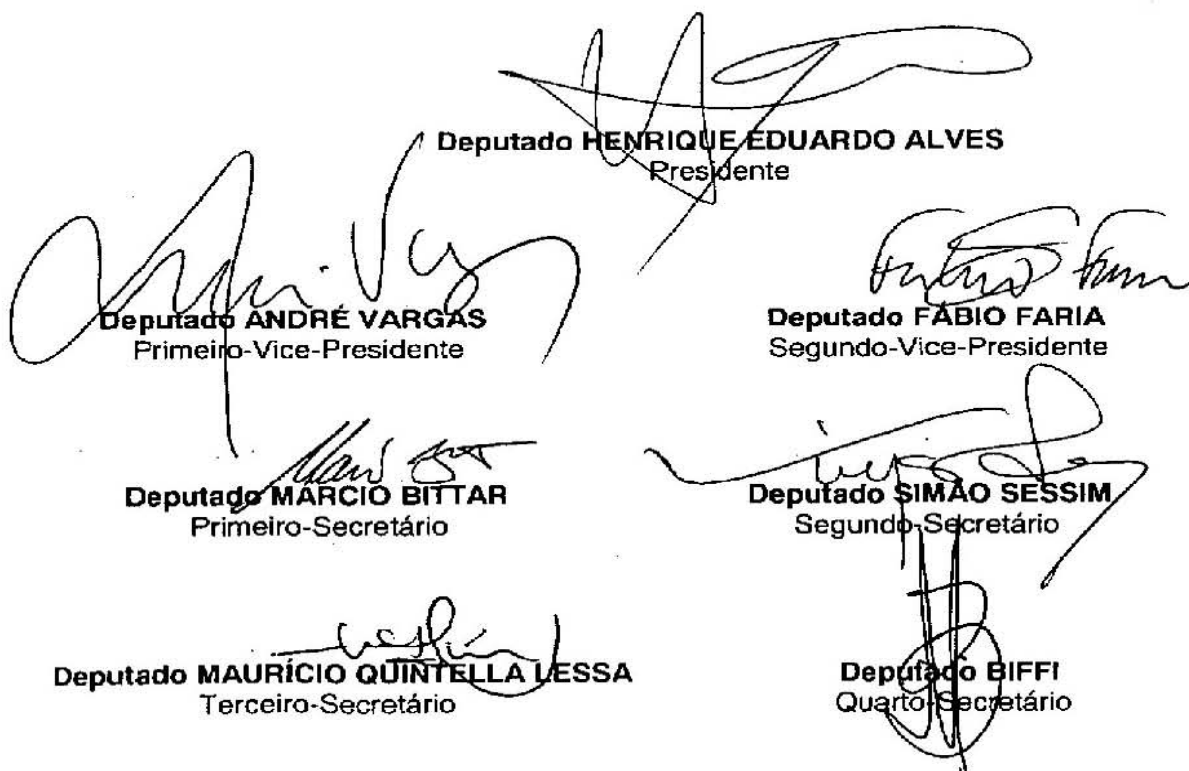 Deputado HENRIQUE EDUARDO ALVES
Presidente
Deputado ANDRÉ VARGAS
Primeiro-Vice-Presidente
Deputado FÁBIO FARIA
Segundo-Vice-Presidente
Deputado MÁRCIO BITTAR
Primeiro-Secretário
Deputado SIMÃO SESSIM
Segundo-Secretário
Deputado MAURÍCIO QUINTELLA LESSA
Terceiro-Secretário
Deputado BIFFI
Quarto-Secretário